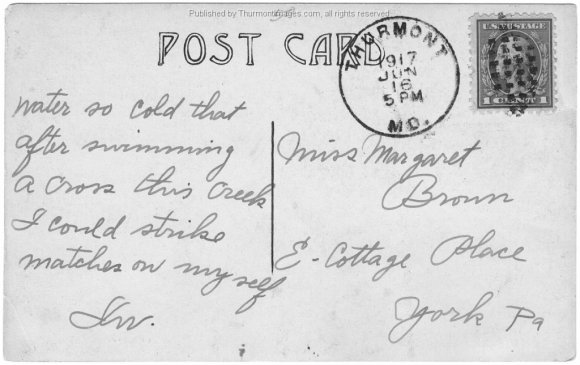 Published by ThurmontImages.com, all rights reserved
POST CARD
THURMONT
1917
JUN
16
5 PM
MD.
U.S. POSTAGE
1 CENT 1
water so cold that
after swimming
a cross this creek
I could strike
matches on my self
Miss Margaret
Brown
E - Cottage Place
York Pa